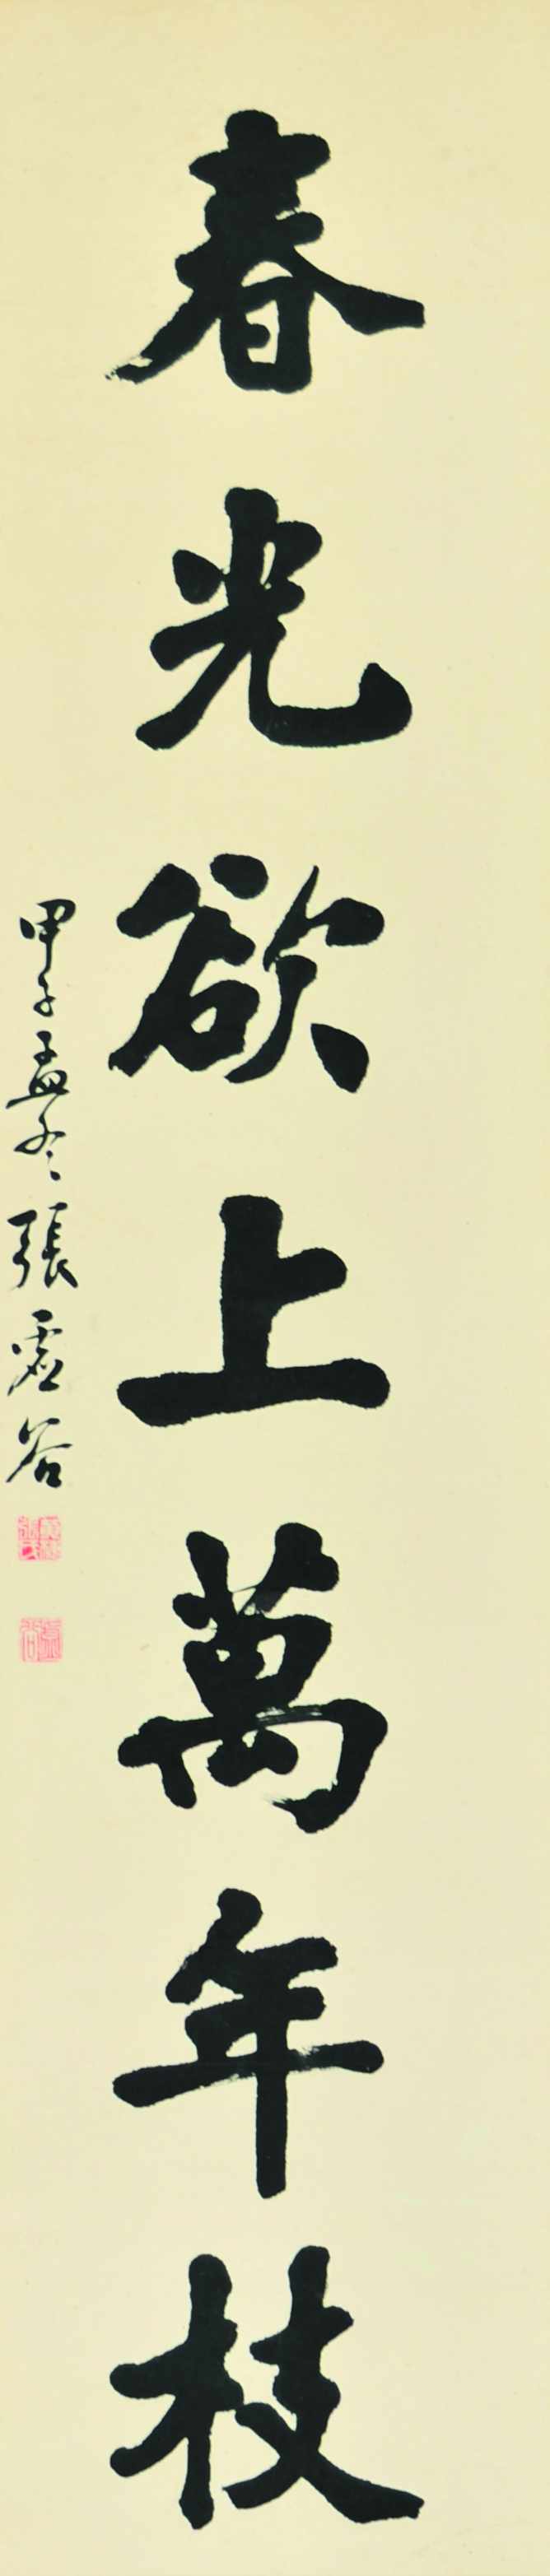 春光欲上萬年枝
甲子孟冬張虛谷